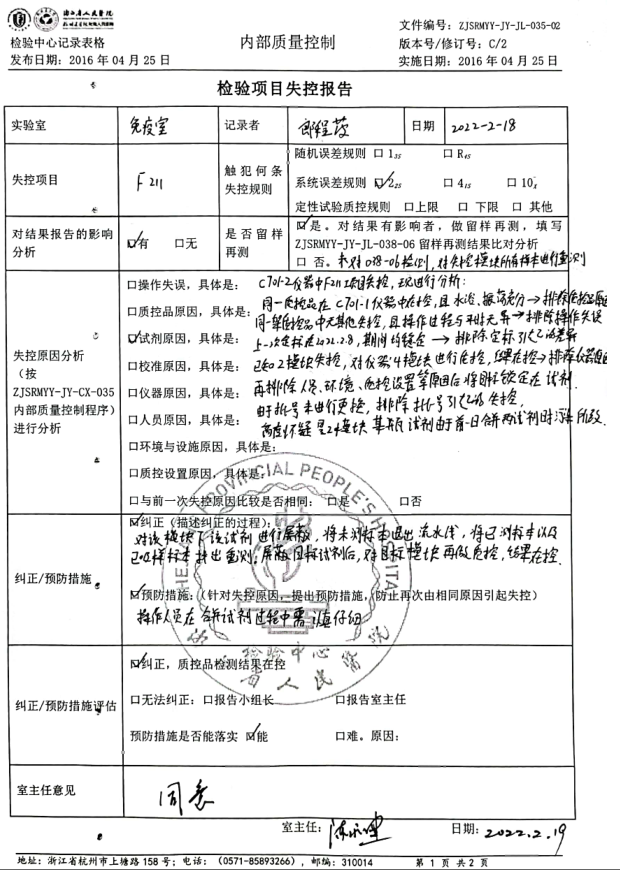 浙江省人民医院
检验中心记录表格
内部质量控制
文件编号：ZJSRMYY-JY-JL-035-02
版本号/修订号：C/2
发布日期：2016 年 04 月 25 日
实施日期：2016 年 04 月 25 日
检验项目失控报告
实验室 免疫室 记录者 日期 2022-2-18
失控项目 F211 触犯何条失控规则
随机误差规则 口 1₃S 口 R₄S
系统误差规则 ☑ 2₂S 口 4₁S 口 10x̄
定性试验质控规则 口上限 口 下限 口 其他
对结果报告的影响分析 ☑有 口无 是否留样再测
☑是。对结果有影响者，做留样再测，填写
ZJSRMYY-JY-JL-038-06 留样再测结果比对分析
口 否。 对失控模块所有样本进行重测
失控原因分析
（按
ZJSRMYY-JY-CX-035
内部质量控制程序）
进行分析
口操作失误，具体是： C701-2仪器中F211项目失控，现进行分析：
口质控品原因，具体是： 同一质控品在C701-1仪器中在控，且
☑试剂原因，具体是： 同一等质控品中无其他失控，且操作过程 → 排除操作失误
上一次定标在2022.2.8，期间均稳定 → 排除定标引起
口校准原因，具体是： 模块失控，对仪器4模块进行质控，结果在控→排除仪器原因
口仪器原因，具体是： 再排除人员、环境、质控设置等原因后将目标锁定在试剂
口人员原因，具体是： 由于批号未进行更换，排除批号引起的失控．
高度怀疑是2#模块 试剂由于前一日合并两试剂时 所致．
口环境与设施原因，具体是：
口质控设置原因，具体是：
口与前一次失控原因比较是否相同：口是 口否
纠正/预防措施
☑纠正（描述纠正的过程）：
对该模块下该试剂进行屏蔽，将未测标本退出流水线，将已测标本以及
已吸样标本 出重测；屏蔽目标试剂后，对目标模块再做质控，结果在控．
☑预防措施：（针对失控原因，提出预防措施，防止再次由相同原因引起失控）
操作人员在合并试剂过程中需谨慎仔细
纠正/预防措施评估
☑纠正，质控品检测结果在控
口无法纠正：口报告小组长 口报告室主任
预防措施是否能落实 ☑能 口难。原因：
ZHEJIANG PROVINCIAL PEOPLE'S HOSPITAL
浙江省人民医院
检验中心
室主任意见 同意
室主任： 日期：2022.2.19
地址：浙江省杭州市上塘路 158 号；电话：（0571-85893266），邮编：310014 第 1 页 共 2 页